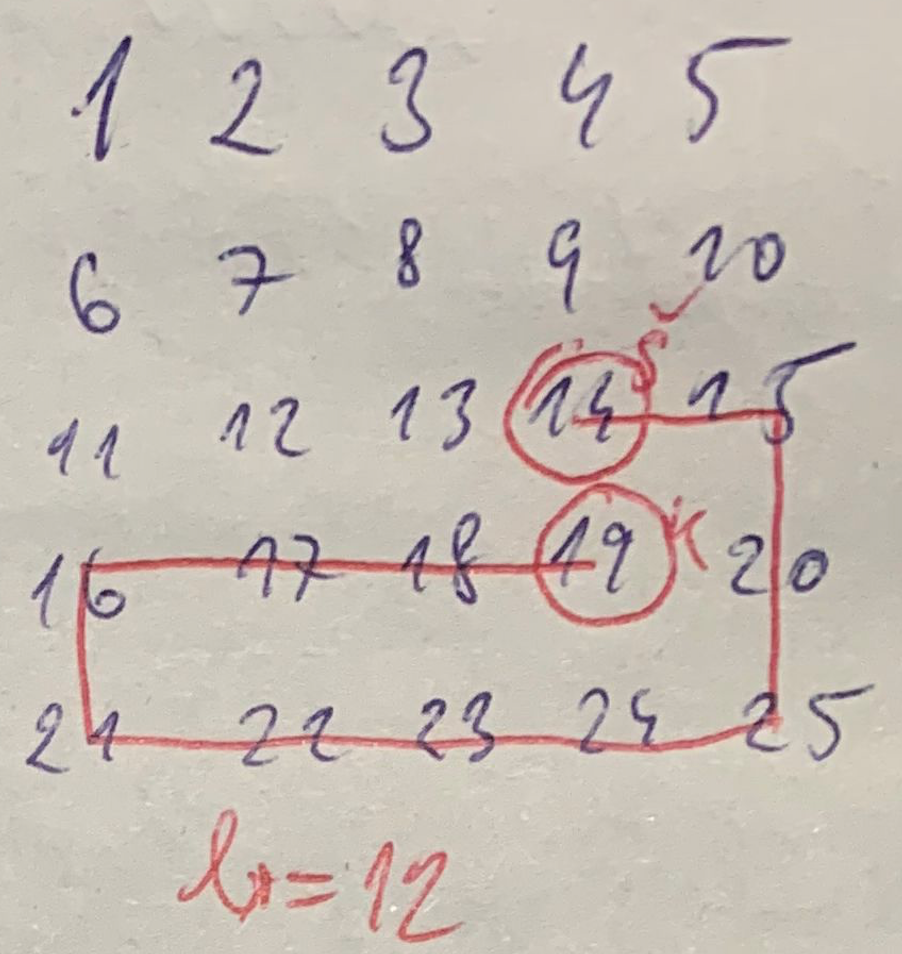 1 2 3 4 5
6 7 8 9 10
11 12 13 14 S 15
16 17 18 19 K 20
21 22 23 24 25
= 12